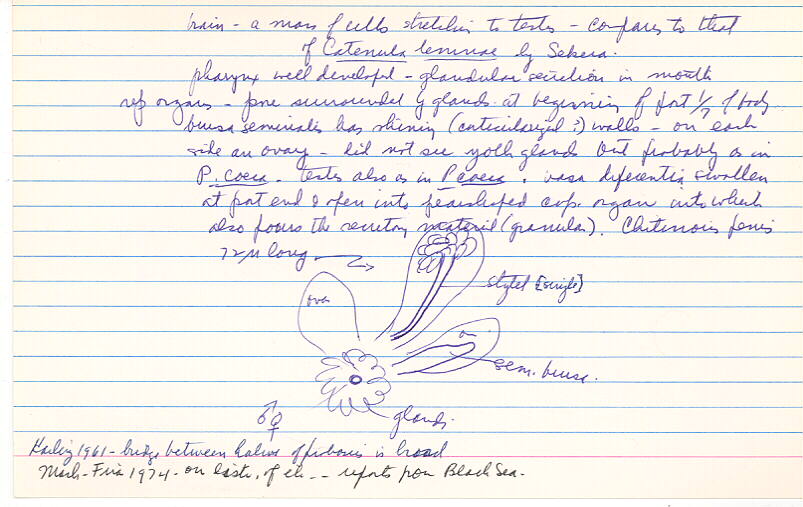 brain - a mass of cells stretching to testes - compares to that
of Catenula lemnae by Sekera.
pharynx well developed - glandular secretion in mouth
rep organs - pore surrounded by glands at beginning of post 1/7 of body
bursa seminalis has shining (cuticularized?) walls - on each
side an ovary - did not see yolk glands but probably as in
P. coeca. testes also as in P coeca. vasa deferentia swollen
at post end & open into pearshaped cop. organ into which
also pours the secretory material (granular). Chitinous penis
72µ long
stylet [single]
ova
ov.
sem. bursa.
♂♀
glands.
Karling 1961 - bridge between halves of is broad
1974 - on distr. of - - reports from Black Sea.